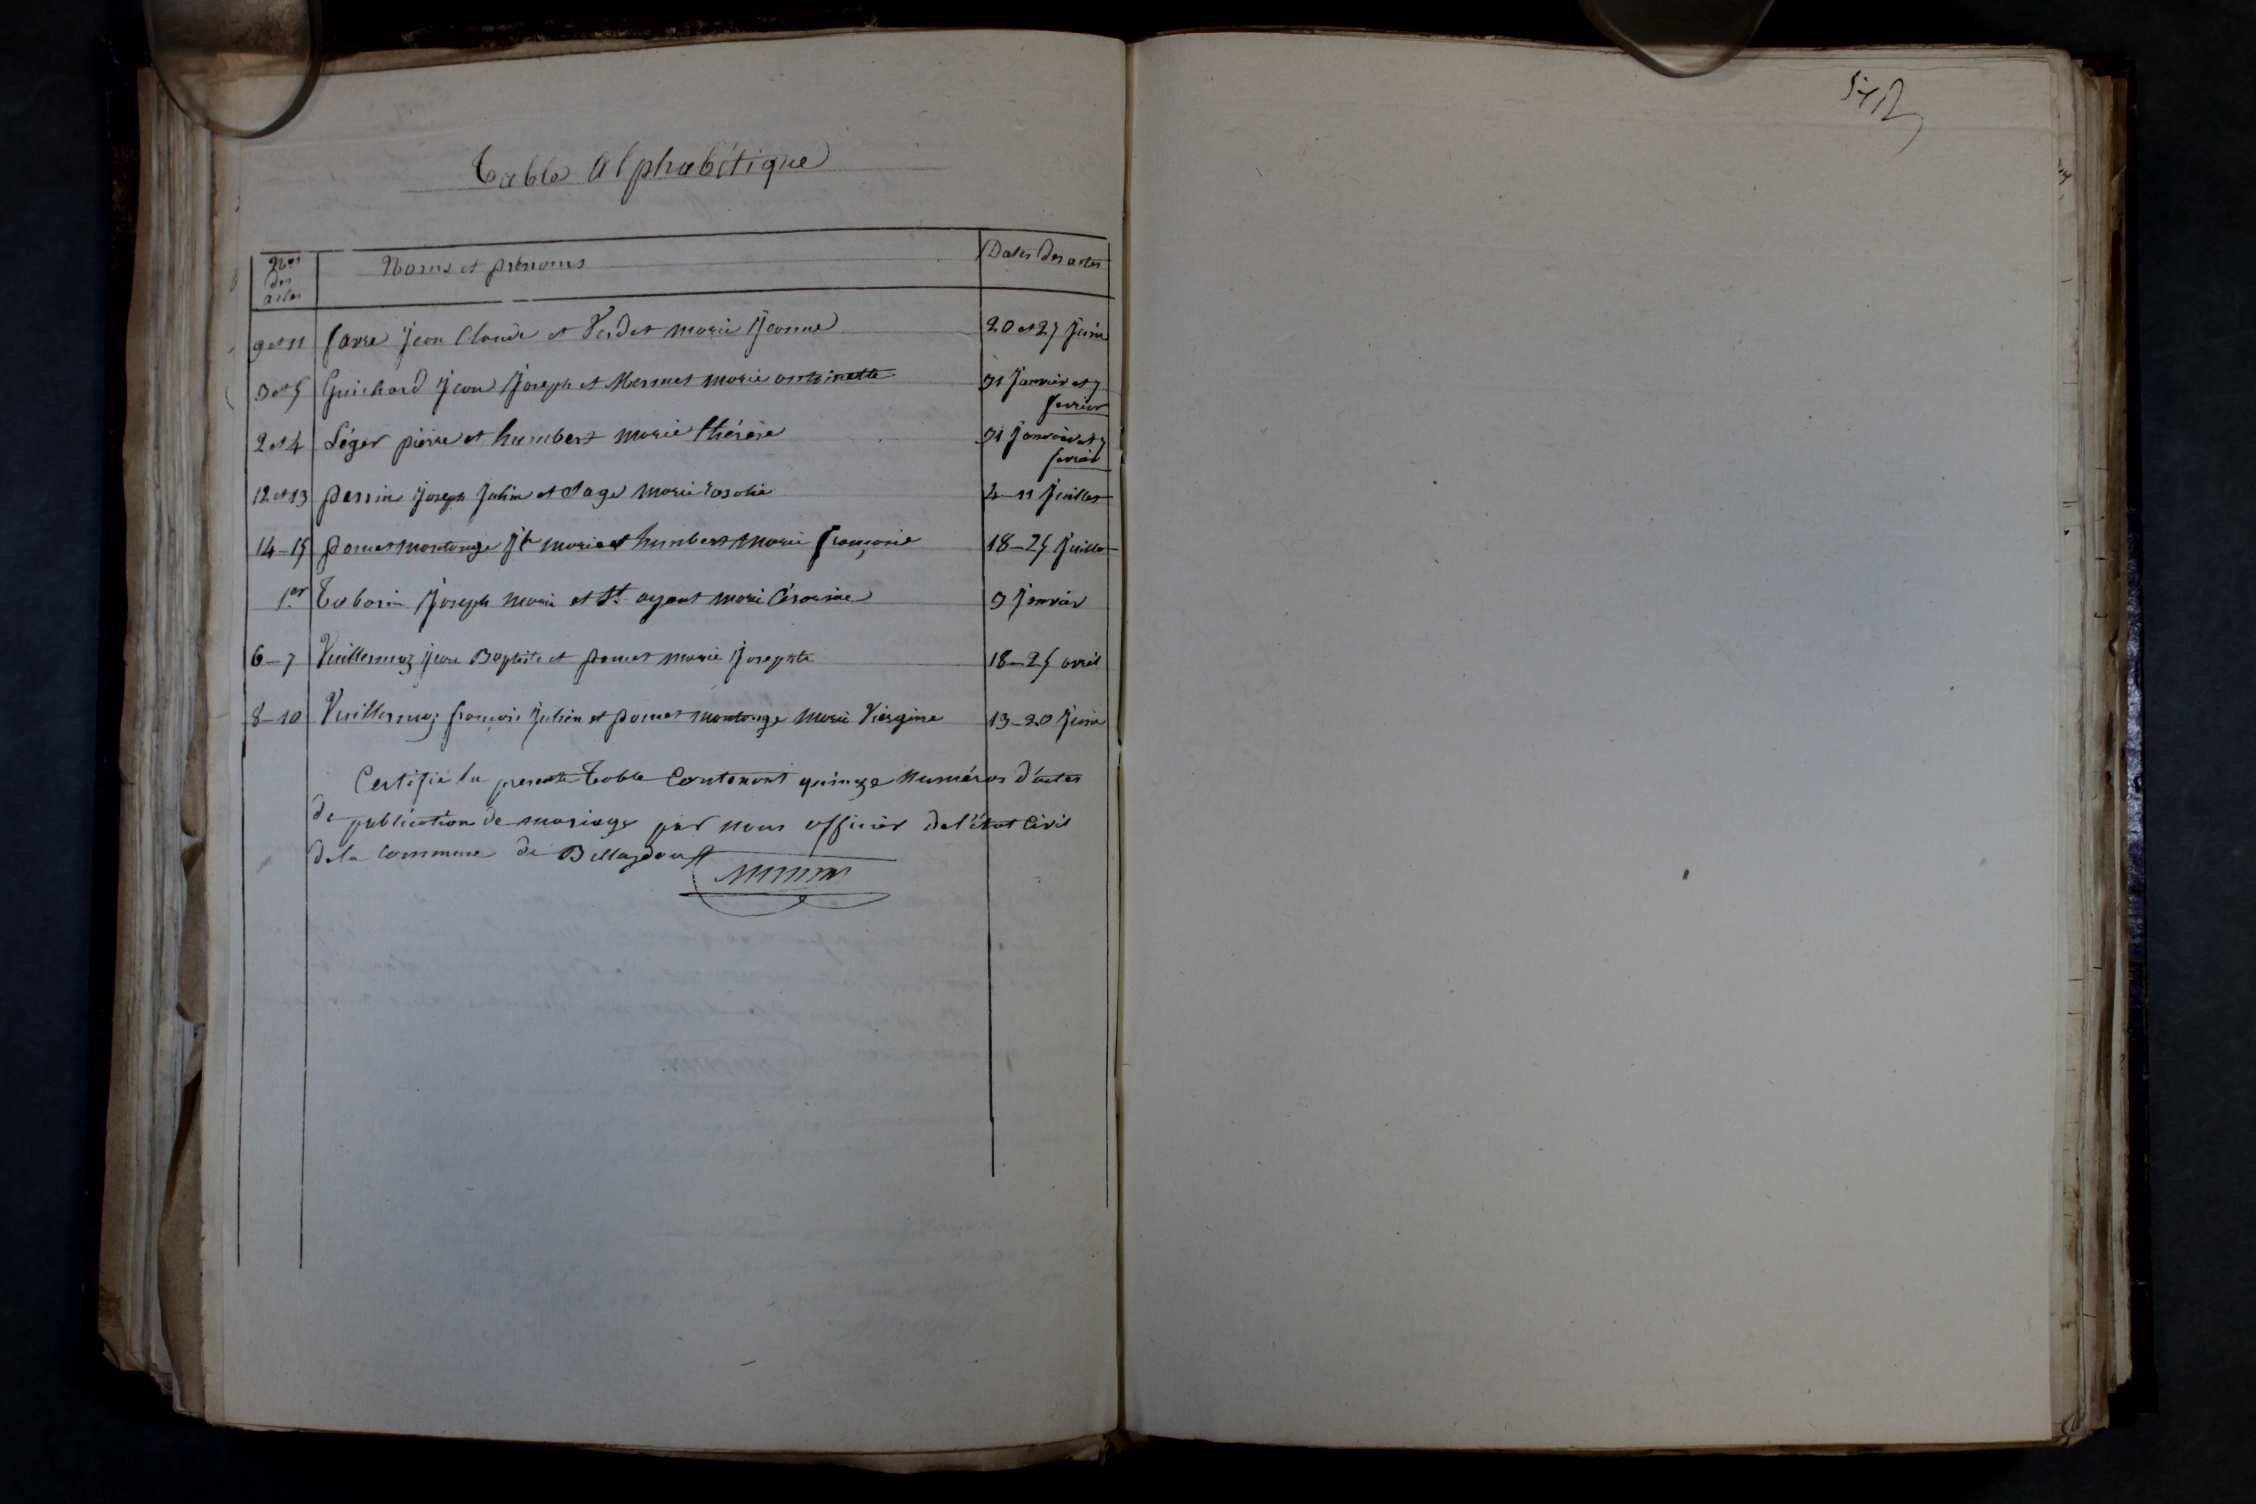 Table Alphabétique
Nos des actes Noms et prénoms Dates des actes
9 et 11 favre Jean Claude et Verdet marie Jeanne 20 et 27 Juin
3 et 5 Guichard Jean Joseph et Mermet marie antoinette 31 Janvier et 7 fevrier
2 et 4 Léger pierre et humbert marie thérèse 31 Janvier et 7 fevrier
12 et 13 perrin Joseph Julien et Sage marie rosalie 4 - 11 Juillet
14 - 15 pomet montange Jh marie et humbert marie françoise 18 - 25 Juillet
1.er Taborin Joseph marie et St. oyant marie Césarine 9 Janvier
6 - 7 Vuillermoz Jean Baptiste et pomet marie Josephte 18 - 25 avril
8 - 10 Vuillermoz françois Julien et pomet montange marie Virgine 13 - 20 Juin
Certifié la presente Table Contenant quinze numéros d'actes
de publication de mariage par nous officier de l'état Civil
de la commune de Belleydoux